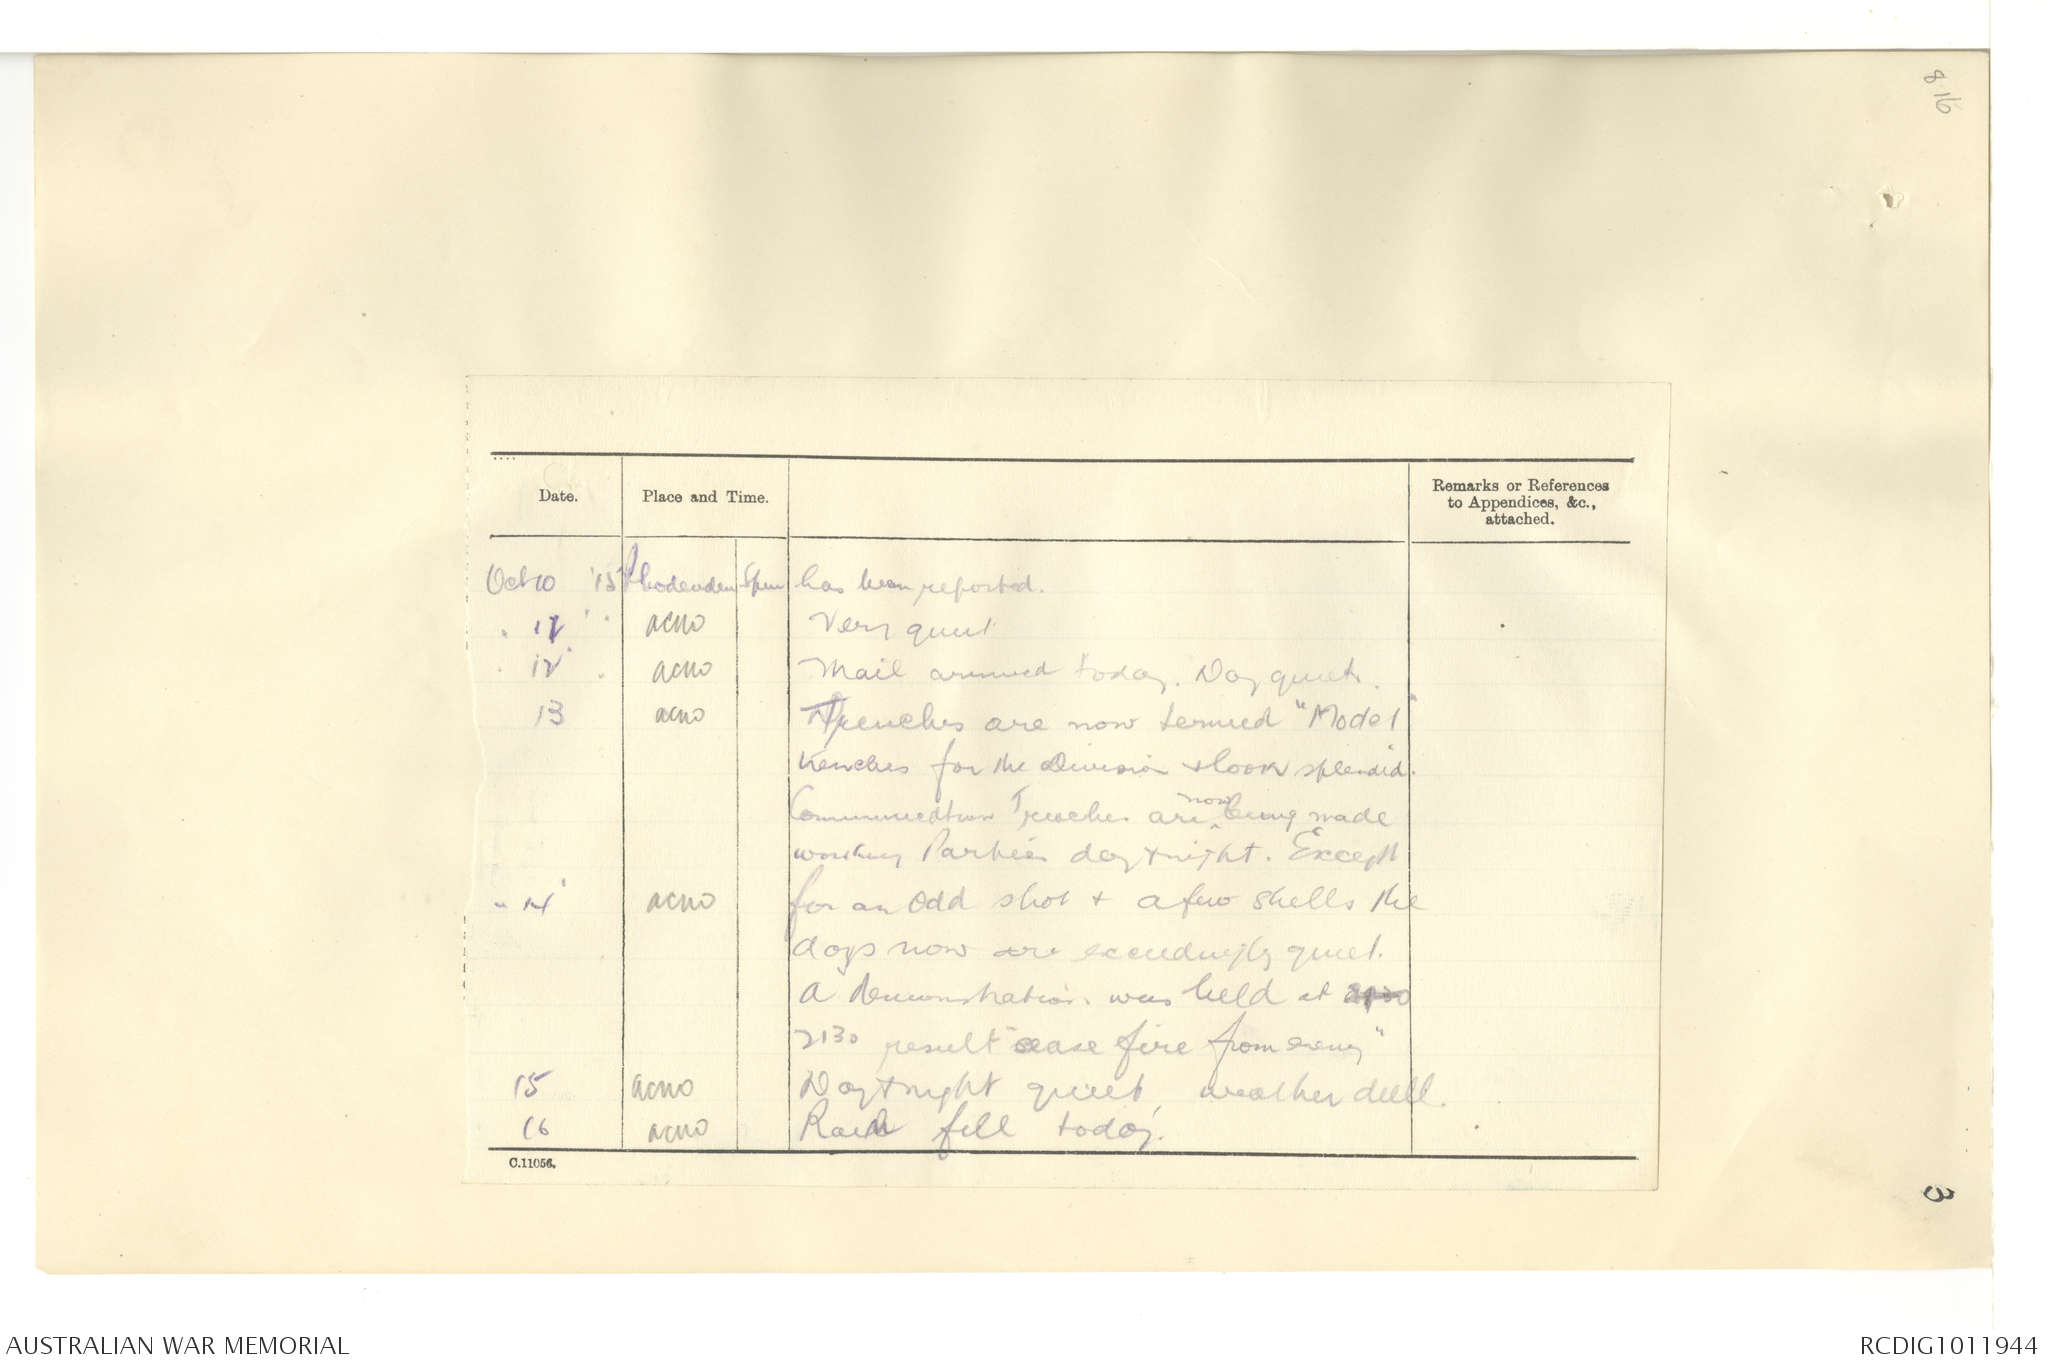 816
Date. Place and Time. Remarks or References
to Appendices, &c.,
attached.
Oct 10 '15 Rhodenden Spur has been reported.
" 11 " " acno Very quiet
" 12 " acno Mail arrived today. Day quiet.
13 acno Trenches are now termed "Model"
trenches for the Division & look splendid.
Communication Trenches are now being made
working Parties day & night. Except
" 14 acno for an odd shot & a few shells the
days now are exceedingly quiet.
A Demonstration was held at 2130
2130 result "cease fire from enemy"
15 acno Day & night quiet, weather dull.
16 acno Rain fell today.
C.11056.
3
AUSTRALIAN WAR MEMORIAL
RCDIG1011944